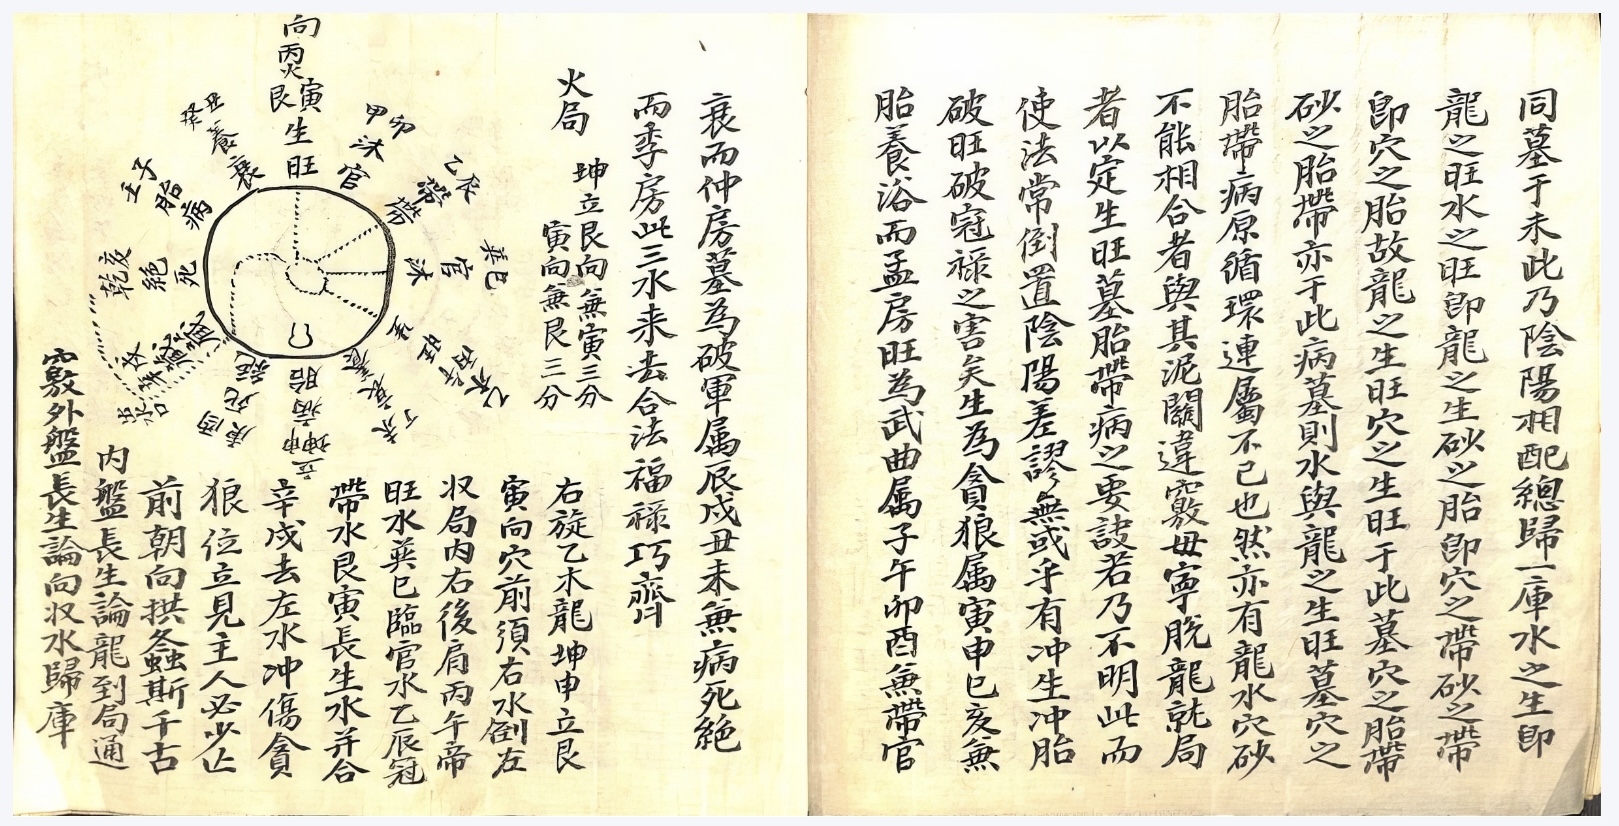 同墓于未此乃陰陽相配總歸一庫水之生即
龍之旺水之旺即龍之生砂之胎即穴之帶砂之帶
即穴之胎故龍之生旺穴之生旺于此墓穴之胎帶
砂之胎帶亦于此病墓則水與龍之生旺墓穴之
胎帶病原循環連屬不已也然亦有龍水穴砂
不能相合者與其泥關違竅毋寧脫龍就局
者以定生旺墓胎帶病之要訣若乃不明此而
使法常倒置陰陽差謬無或乎有冲生冲胎
破旺破冠祿之害矣生為貪狼屬寅申巳亥無
胎養浴而孟房旺為武曲屬子午卯酉無帶官
衰而仲房墓為破軍屬辰戌丑未無病死絕
而季房此三水来去合法福祿巧齊
火局
坤立艮向無寅三分
寅向無艮三分
右旋乙木龍坤申立艮
寅向穴前須右水倒左
収局内右後肩丙午帝
旺水巽巳臨官水乙辰冠
帶水艮寅長生水并合
辛戌去左水冲傷貪
狼位立見主人必少亡
前朝向拱螽斯千古
内盤長生論龍到局通
竅外盤長生論向収水歸庫
向
丙火
艮寅
生
旺
甲卯
沐
官
乙辰
帶
巽巳
官
沐
旺
生
丁未
衰
養
坤申
病
胎
庚酉
死
絕
乾亥
絕
死
壬子
胎
病
癸丑
養
衰